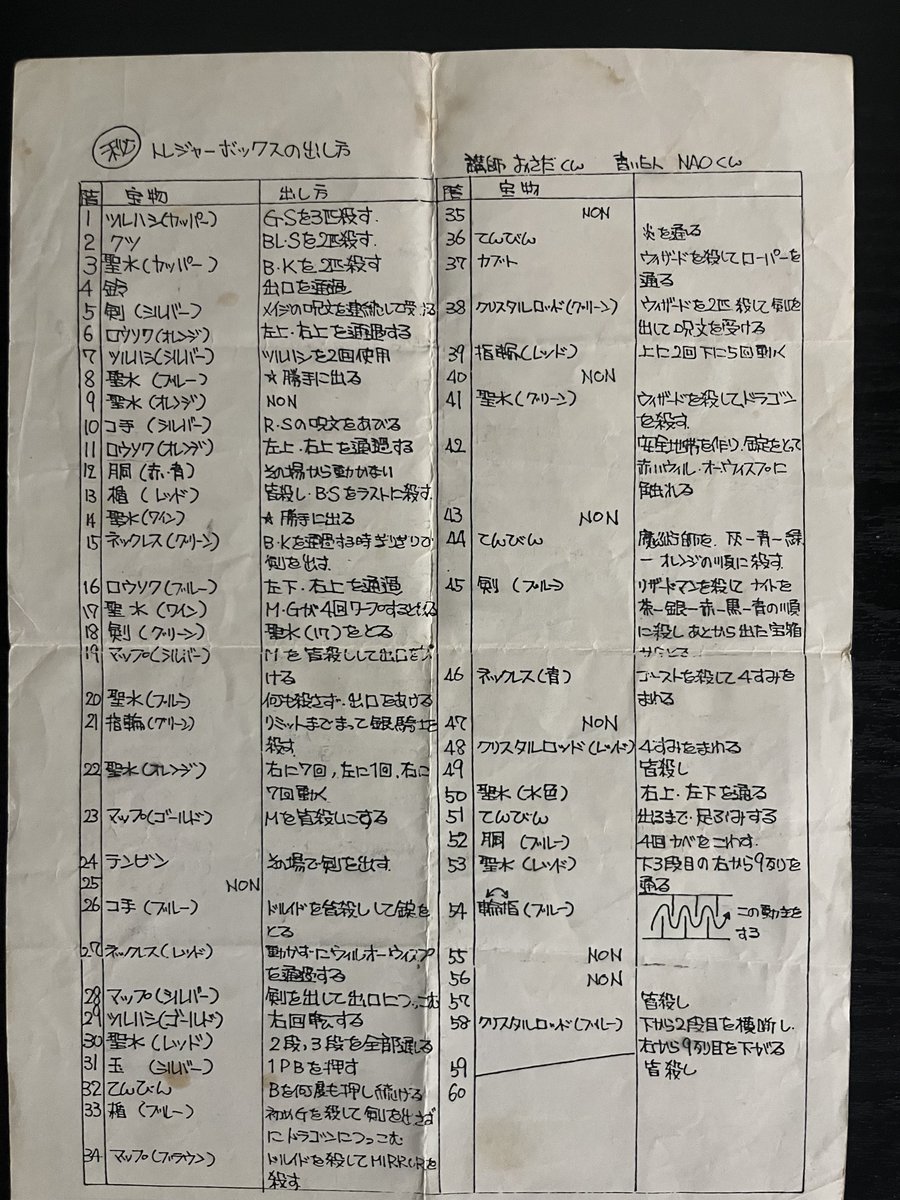 秘 トレジャーボックスの出し方
講師 おさだくん NAOくん
階 宝物 出し方
1 ツルハシ(カッパー) G・Sを3匹殺す.
2 クツ BL・Sを2匹殺す.
3 聖水(カッパー) B・Kを2匹殺す
4 鈴 出口を通過
5 剣(シルバー) メイジの呪文を連続して受ける
6 ロウソク(オレンジ) 左上・右上を通過する
7 ツルハシ(シルバー) ツルハシを2回使用
8 聖水(ブルー) ☆勝手に出る
9 聖水(オレンジ) NON
10 コ手(シルバー) R・Sの呪文をあびる
11 ロウソク(オレンジ) 左上・右上を通過する
12 胴(赤・青) その場から動かない
13 楯(レッド) 皆殺し・B・Sをラストに殺す.
14 聖水(ワイン) ☆勝手に出る
15 ネックレス(グリーン) B・Kを通過する時ぎりぎりで
剣を出す.
16 ロウソク(ブルー) 左下・右上を通過
17 聖水(ワイン) M・Gが4回ワープするとでる
18 剣(グリーン) 聖水(17)をとる
19 マップ(シルバー) Mを皆殺しして出口を
ける
20 聖水(ブルー) 何も殺さず・出口をあける
21 指輪(グリーン) リミットまでまって銀騎士を
殺す
22 聖水(オレンジ) 右に7回,左に1回,右に
7回動く
23 マップ(ゴールド) Mを皆殺しにする
24 テンビン その場で剣を出す.
25 NON
26 コ手(ブルー) ドルイドを皆殺しして錠を
とる
27 ネックレス(レッド) 動かずにウィルオーウィスプ
を通過する
28 マップ(シルバー) 剣を出して出口につっこむ
29 ツルハシ(ゴールド) 右回転する
30 聖水(レッド) 2段,3段を全部通る
31 玉(シルバー) 1PBを押す
32 てんびん Bを何度も押し続ける
33 楯(ブルー) 初めGを殺して剣を出さず
にドラゴンにつっこむ
34 マップ(ブラウン) ドルイドを殺してMIRRORを
殺す
階 宝物
35 NON
36 てんびん 炎を通る
37 カブト ウィザードを殺してローパーを
通る
38 クリスタルロッド(グリーン) ウィザードを2匹殺して剣を
出して呪文を受ける
39 指輪(レッド) 上に2回下に5回動く
40 NON
41 聖水(グリーン) ウィザードを殺してドラゴン
を殺す.
42 安全地帯を作り,錠をとって
赤いウィル・オーウィスプに
触れる
43 NON
44 てんびん 魔術師を、灰―青―緑
―オレンジの順に殺す.
45 剣(ブルー) リザードマンを殺してナイトを
茶―銀―赤―黒―青の順
に殺しあとから出た宝箱
46 ネックレス(青) ゴーストを殺して4すみを
まわる
47 NON
48 クリスタルロッド(レッド) 4すみをまわる
49 皆殺し
50 聖水(水色) 右上・左下を通る
51 てんびん 出るまで・足ぶみする
52 胴(ブルー) 4回カベをこわす.
53 聖水(レッド) 下3段目の右から9列りを
通る
54 輪指(ブルー) この動きを
する
55 NON
56 NON
57 皆殺し
58 クリスタルロッド(ブルー) 下から2段目を横断し.
右から9列目を下がる
59 皆殺し
60